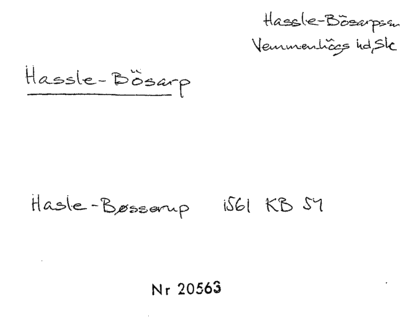 Hassle-Bösarpssn
Vemmenhögs hd, Sk
Hassle-Bösarp
Hasle-Bøsserup 1561 KB 57
Nr 20563